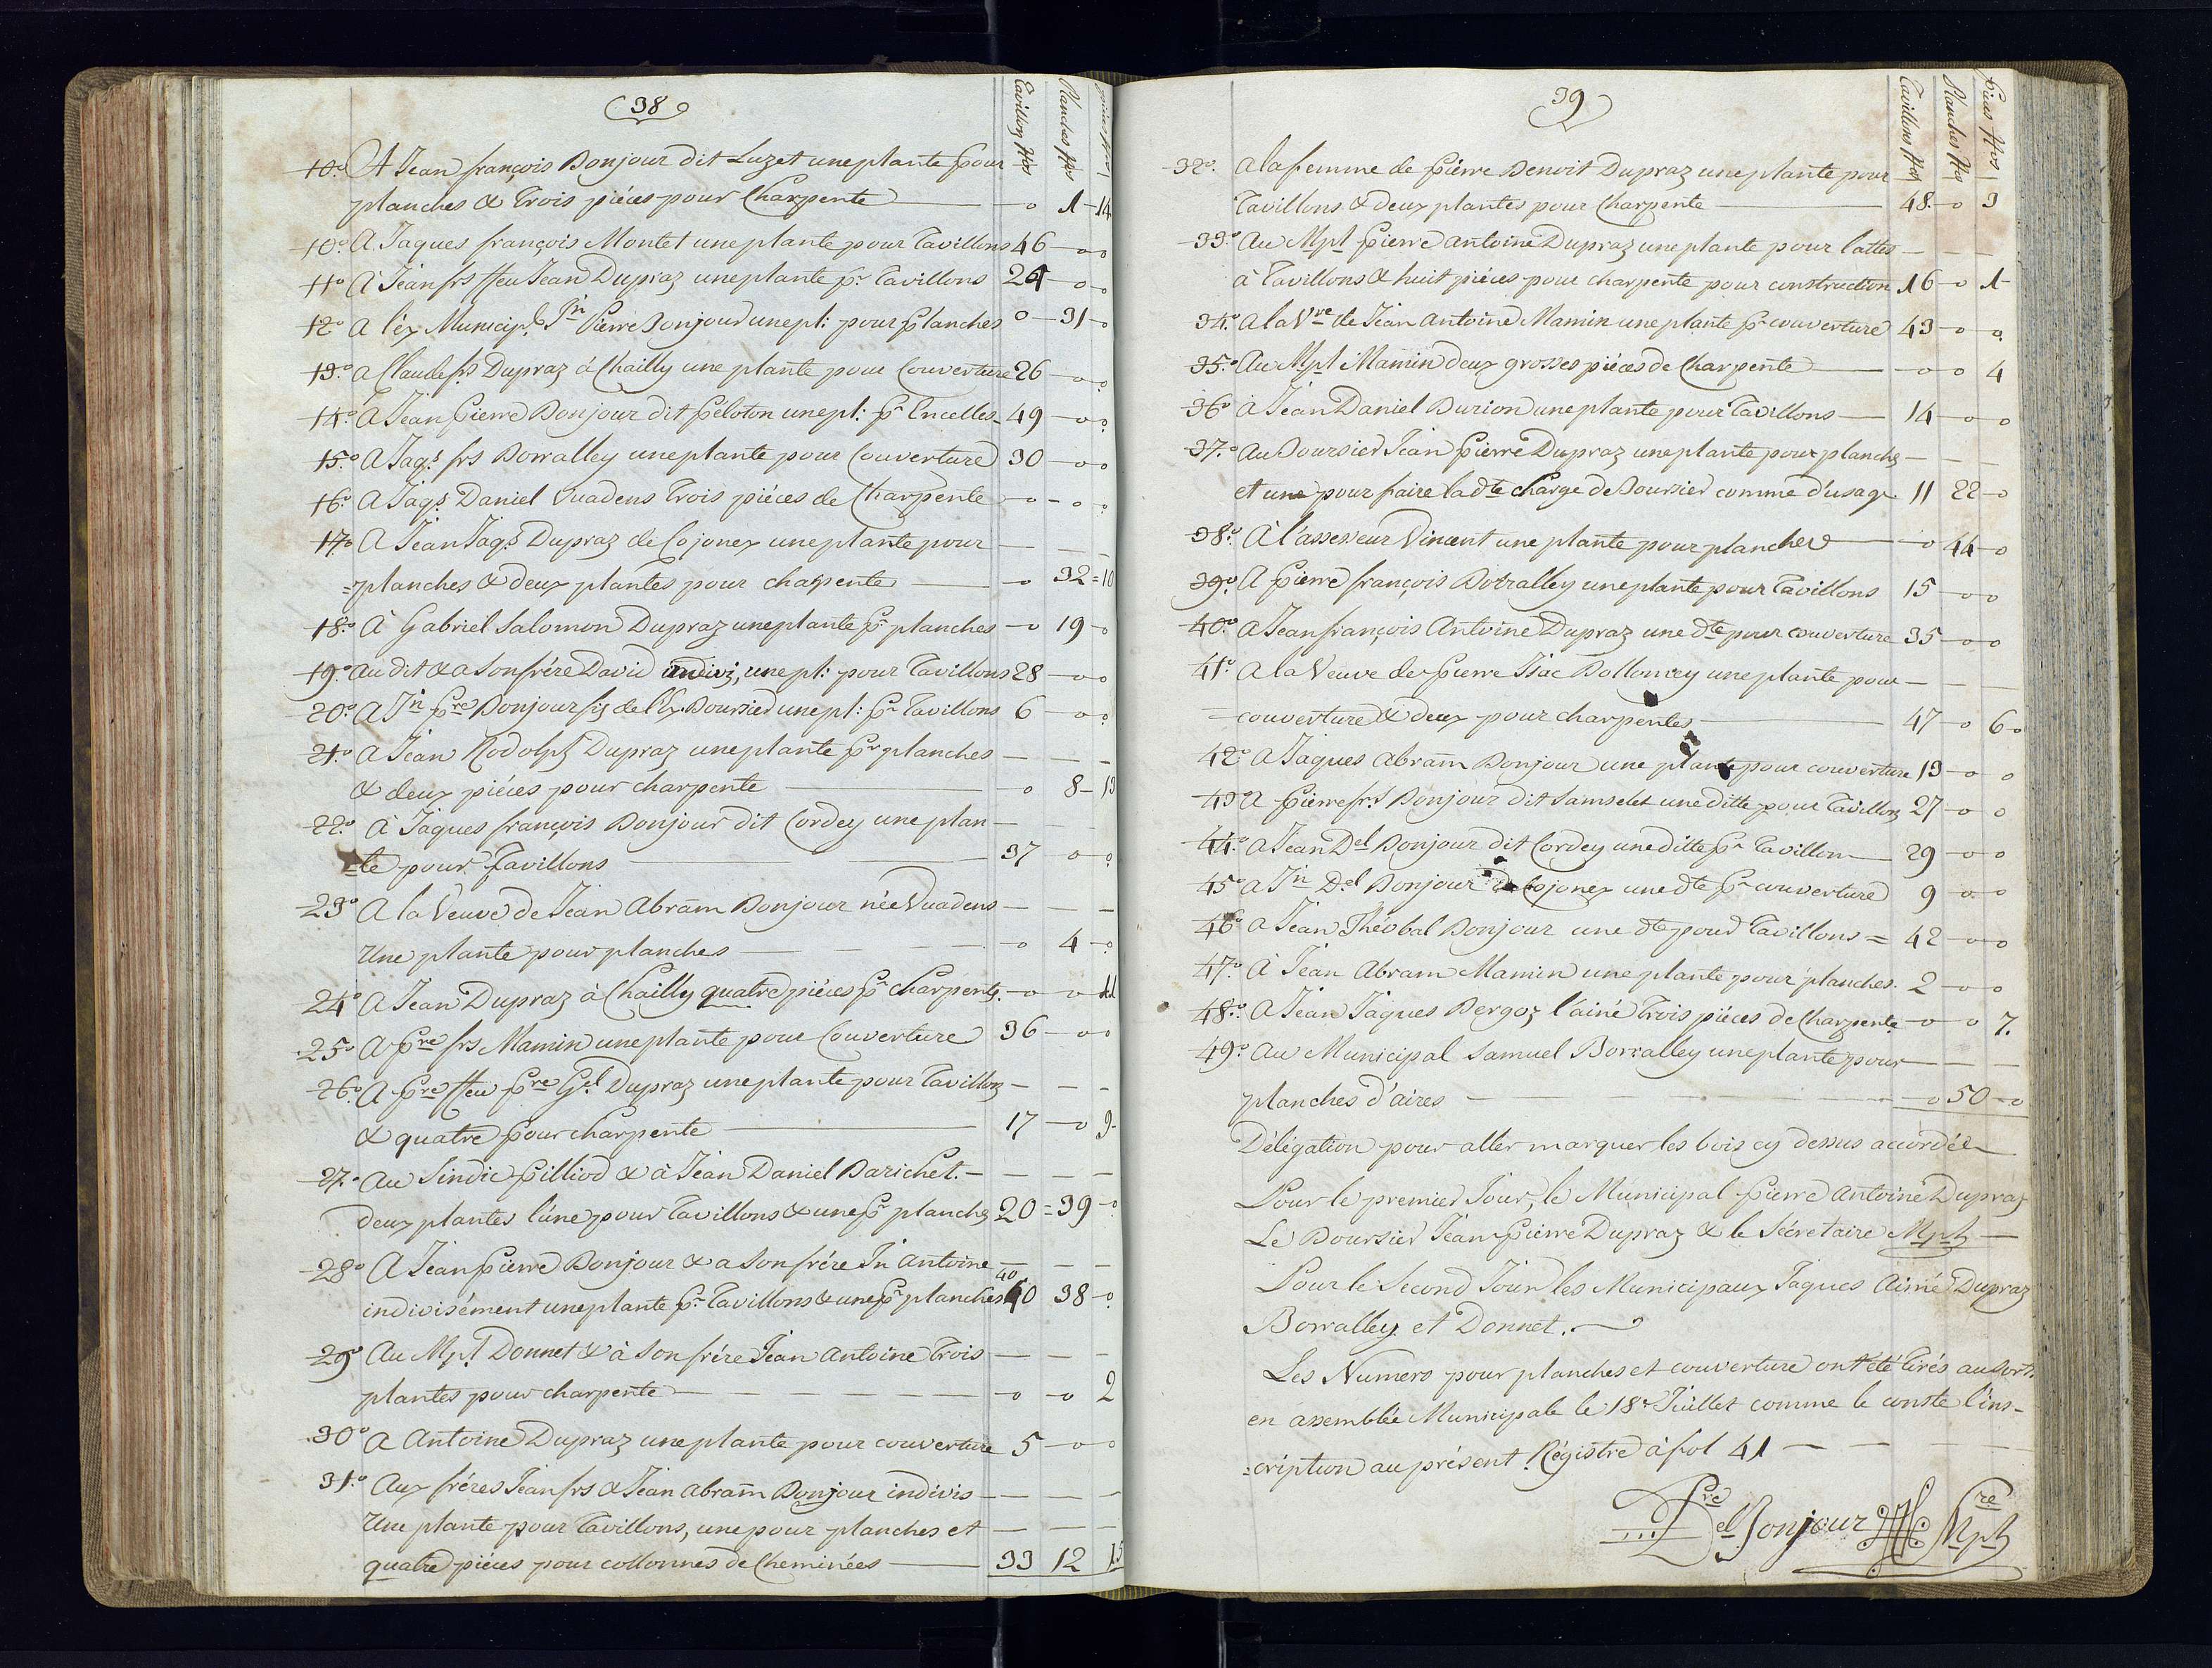 38
Tavillons Nos Planches Nos pièces Nos
10.° A Jean françois Bonjour dit Luzet une plante pour
planches & Trois piéces pour Charpente — o 1 - 14
10.° A Jaques françois Montet une plante pour Tavillons 46 - o o
11.° A Jean frs ffeu Jean Dupraz une plante pr. Tavillons 24 - o o
12.° A l'ex Municipl. Jn Pierre Bonjour une pl: pour planches o - 31 - o
13.° A Claude frs Dupraz à Chailly une plante pour Couverture 26 - o o
14.° A Jean Pierre Bonjour dit Peloton une pl: pr Encelles - 49 - o o
15.° A Jaqs. frs Borralley une plante pour Couverture 30 - o o
16.° A Jaqs. Daniel Vuadens Trois piéces de Charpente - o - o o
17.° A Jean Jaqs. Dupraz de Cojonex une plante pour — — —
=planches & deux plantes pour charpente — o 32 = 10
18.° A Gabriel Salomon Dupraz une plante pr. planches - o 19 - o
19.° Au dit & a son frére David indiviz, une pl: pour Tavillons 28 - o o
20.° A Jn Pre Bonjour fis de l'Ex. Boursier une pl: pr Tavillons 6 - o o
21.° A Jean Rodolph Dupraz une plante pr planches — — —
& deux piéces pour charpente — o 8 - 13
22.° A Jaques françois Bonjour dit Cordey une plan — —
=te pour Tavillons — 37 o o
23.° A la Veuve de Jean Abram Bonjour née Vuadens — — —
Une plante pour planches — o 4 - o
24.° A Jean Dupraz à Chailly quatre piéces pr Charpente. - o - o 11
25.° A Pre frs Mamin une plante pour Couverture 36 - o o
26.° A Pre ffeu Pre Gel Dupraz une plante pour Tavillons — — —
& quatre pour charpente — 17 - o 9.
27.° Au Sindic Pilliod & à Jean Daniel Barichet. — — — —
deux plantes l'une pour Tavillons & une pr planches 20 = 39 - o
28.° A Jean Pierre Bonjour & a son frére Jn Antoine — — —
40
indivisément une plante pr. Tavillons & une pr planches 40 38 - o
29.° Au Mpl Donnet & à son frére Jean Antoine Trois — — —
plantes pour charpente — — — o - o 2
30.° A Antoine Dupraz une plante pour couverture 5 - o o
31.° Aux fréres Jean frs & Jean Abram Bonjour indivis — — —
Une plante pour Tavillons, une pour planches et — — —
quatre piéces pour collonnes de Cheminées — 33 12 15
39
Tavillons Nos Planches Nos Pièces Nos
32.° A la femme de Pierre Benoit Dupraz une plante pour
Tavillons & deux plantes pour Charpente — 48 - o 3
33.° Au Mpl Pierre Antoine Dupraz une plante pour lattes — — —
à Tavillons & huit piéces pour charpente pour construction 16 - o 1 -
34.° A la Vve de Jean Antoine Mamin une plante pr couverture 43 - o o
35.° Au Mpl Mamin deux grosses piéces de Charpente — o o 4
36.° A Jean Daniel Burion une plante pour Tavillons — 14 - o o
37.° Au Boursier Jean Pierre Dupraz une plante pour planches — — —
et une pour faire la dte Charge de Boursier comme d'usage. 11 22 - o
38.° A l'assesseur Vincent une plante pour planches — o 44 - o
39.° A Pierre françois Borralley une plante pour Tavillons 15 - o o
40.° A Jean françois Antoine Dupraz une dte pour couverture 35 - o o
41.° A la Veuve de Pierre Isac Dollomey une plante pour — — —
=couverture & deux pour charpentes — 47 - o 6 o
42.° A Jaques Abram Bonjour une plante pour couverture 13 - o o
43.° A Pierre frs Bonjour dit Samselet une ditte pour Tavillons 27 - o o
44.° A Jean Del Bonjour dit Cordey une ditte pr Tavillon — 29 - o o
45.° A Jn Del Bonjour de Cojonex une dte pr couverture 9 - o o
46.° A Jean Théobal Bonjour une dte pour Tavillons = 42 - o o
47.° A Jean Abram Mamin une plante pour planches. 2 - o o
48.° A Jean Jaques Bergoz l'ainé Trois piéces de Charpente - o - o 7.
49.° Au Municipal Samuel Borralley une plante pour — — —
planches d'aires — — — o 50 - o
Déligation pour aller marquer les bois cy dessus accordés
Pour le premier Jour, le Municipal Pierre Antoine Dupraz
Le Boursier Jean Pierre Dupraz & le Sécretaire Mpl —
Pour le Second Jour les Municipaux Jaques Aimé Dupraz
Borralley et Donnet. —
Les Numero pour planches et couverture ont été tirés au sort.
en assemblée Municipale le 18e Juillet comme le conste l'ins-
=cription au présent Régistre à fol 41 — — — —
Pre Del Bonjour Sre Mpl